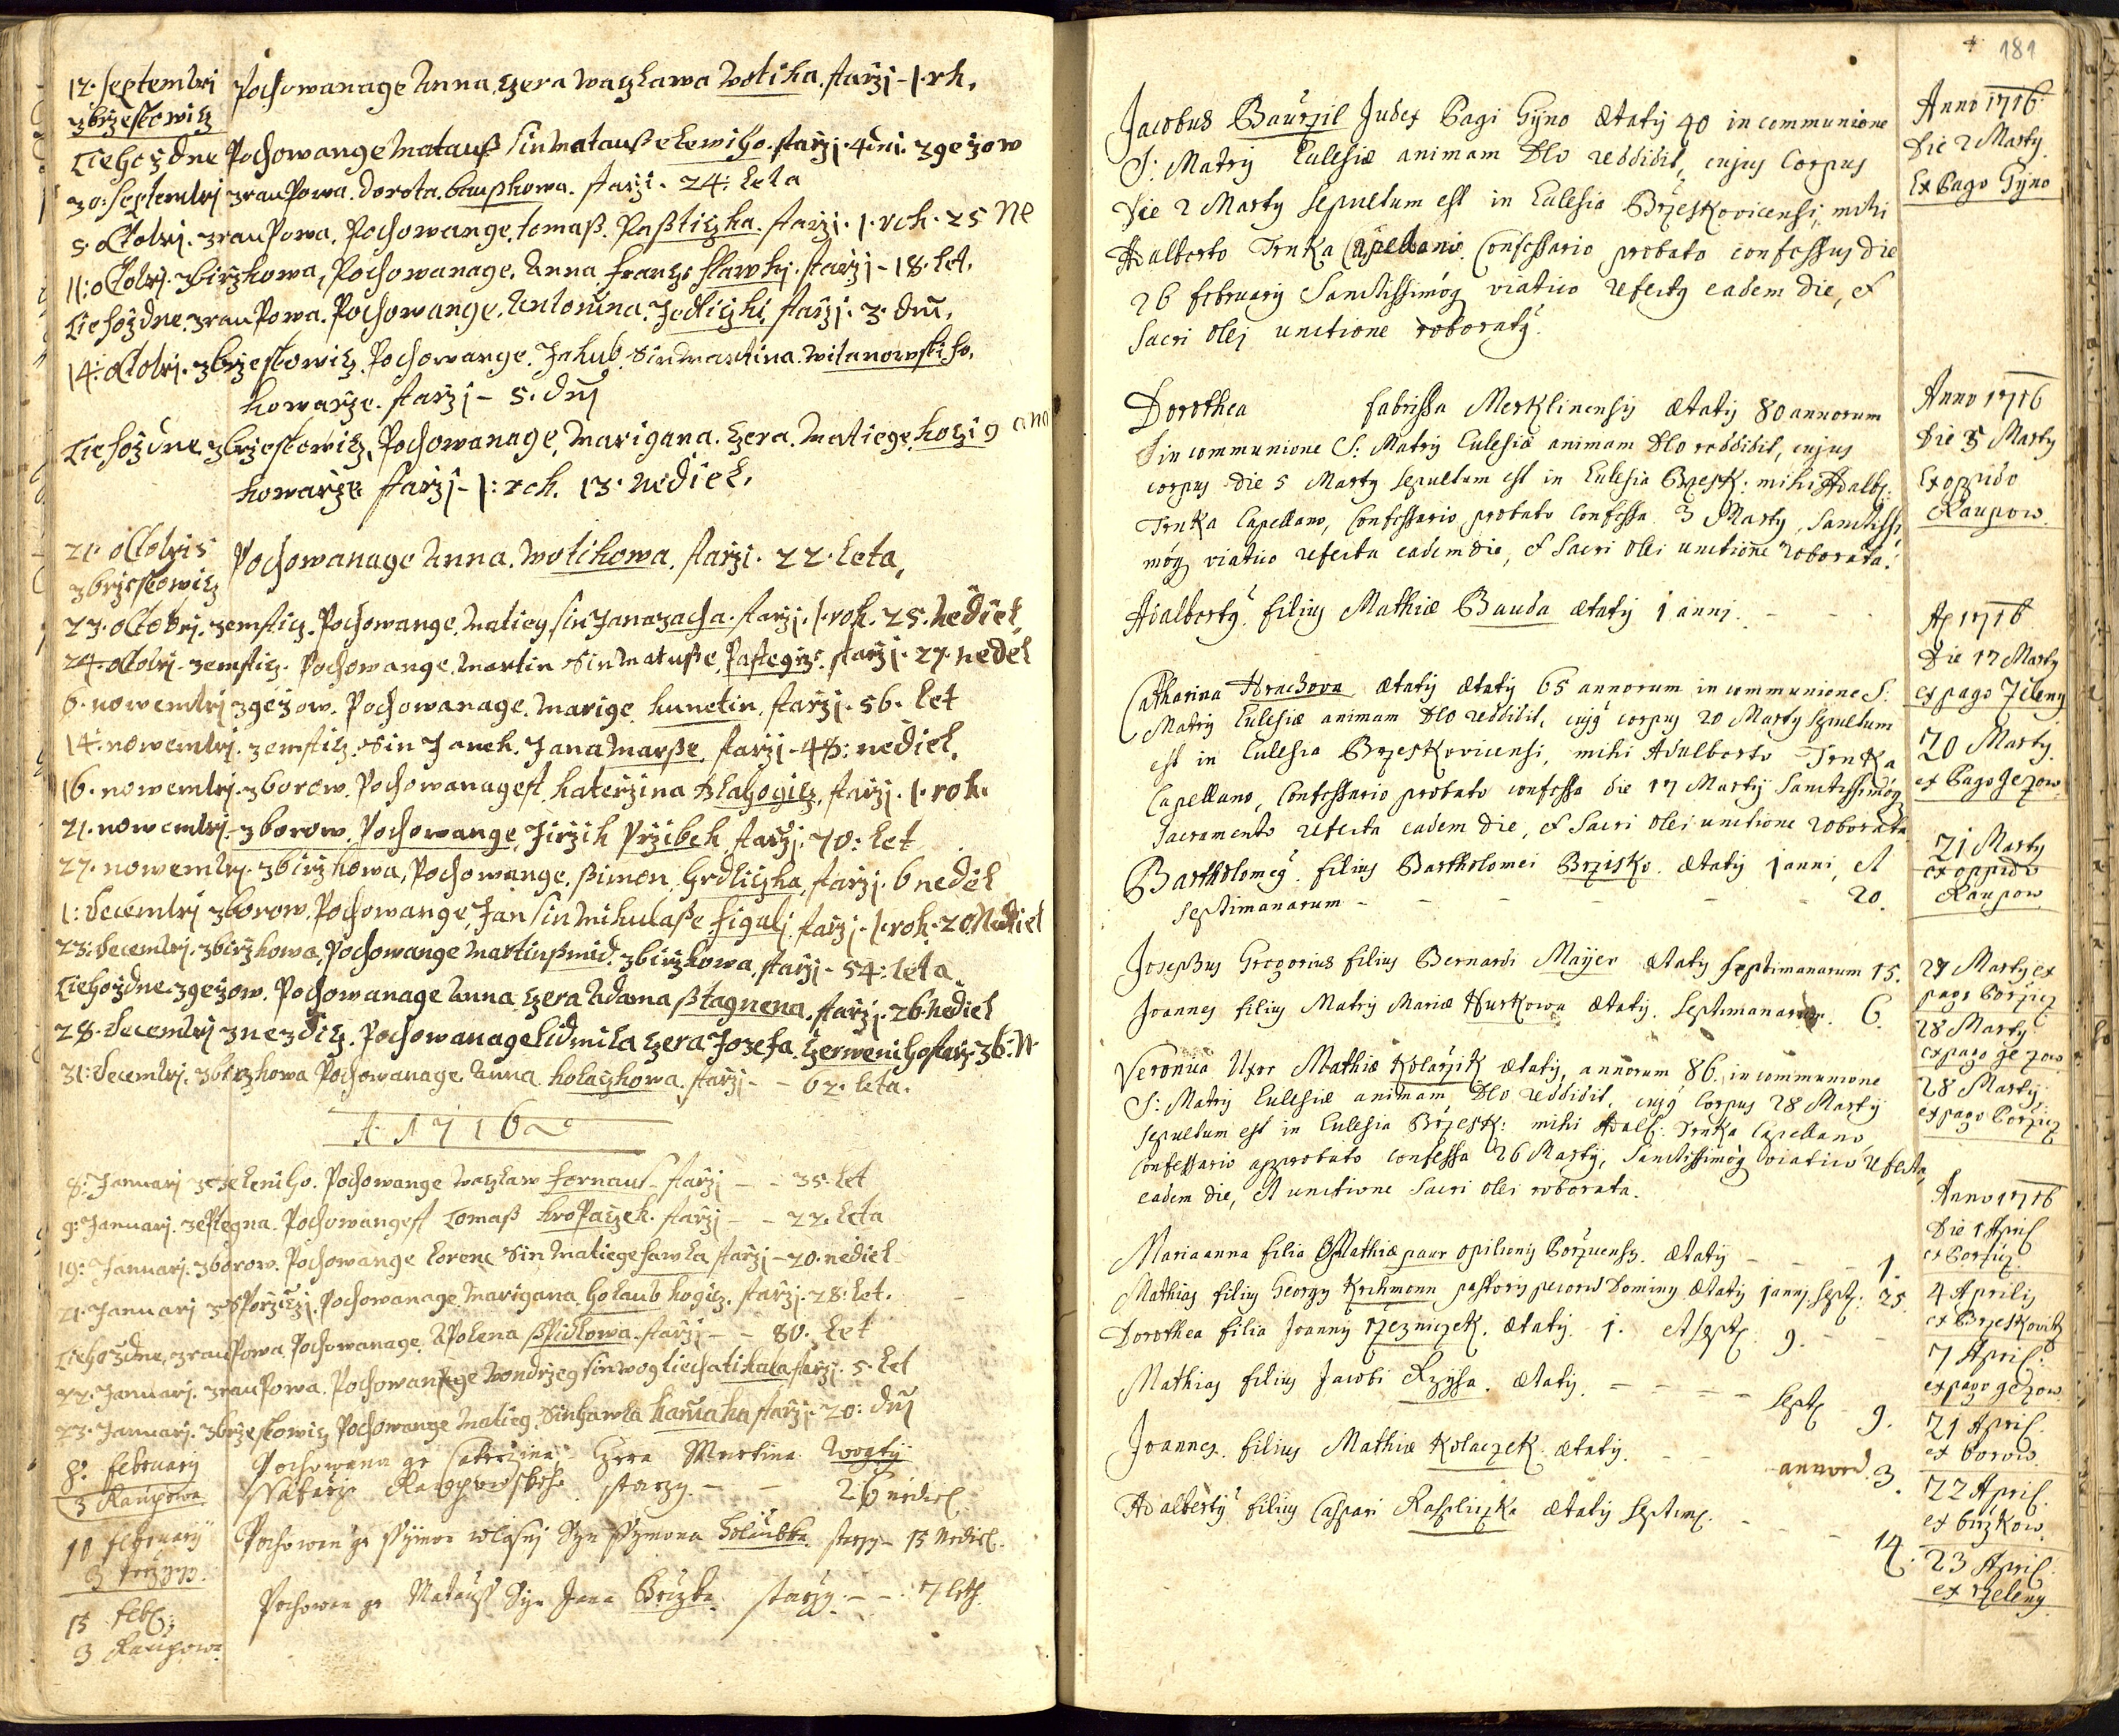 12. septembri Pochowanage Anna czera waczlawa wotika. starzj - 1. rk.
zbrzeskowicz
Tiehozdne Pochowange Matauß sin Matauße Lewiho. starzj. 4 dni. zgezow
30: septembrj zraupowa. Dorota. Bauzkowa. starzi. 24: Leta
5. octobrj. zraupowa. Pochowange. tomaß. Paßticzka. starzj. 1. rok. 25 Ne
11: octobrj. zbirzkowa, Pochowanage. Anna franze slawkj. starzj - 18. let.
Tiehozdne. zraupowa. Pochowange. Antonina. Jedliczki. starzj. 3. dni.
14: octobrj. zbrzeskowicz. Pochowange. Jakub. Sin Martina. wilanowskiho.
kowarze. starzj - 5. dnj
Tiehozdne. zbrzeskowicz, Pochowanage, Marigana. czera. Matiege. kozig ana
kowarze starzj - 1: rok. 13. nediel.
21. octobris Pochowanage Anna. wotikowa. starzi. 22. Leta,
zbrzeskowicz
23. octobrj. zemsticz. Pochowange. Matieg sin Jana zacha. starzj. 1. rok. 25. nediel,
24. octobrj. zemsticz. Pochowange. Martin Sin Matuße, starzj. 27. nedel
6. nowembrj zgezow. Pochowanage. Marige kunetin. starzj. 56. let
14: nowembrj. zemsticz. Sin Janek. Jana Marße. starzj - 48: nediel.
16. nowembrj. zborow. Pochowanagest katerzina Blahogicz, starzj. 1. rok.
21. nowembrj. zborow. Pochowange. Jirzik Przibek, starzj. 70: let
27. nowembrj. zbirzkowa, Pochowange. ßimon, Hrdliczka, starzj. 6 nedel
1: decembrj zborow. Pochowange, Jan sin Mikulaße figulj. starzj. 1. rok. 20 Nediel
23: decembrj. zbirzkowa, Pochowange Martin ßmid. zbirzkowa, starzj - 54: leta
Tiehozdne. zgezow. Pochowanage Anna czera Adama ßtagnena. starzj. 26. nediel
28. decembrj znezdicz. Pochowanage Lidmila czera Jozefa czerweniho starz. 36: N
31: decembrj. zbirzkowa Pochowanage. Anna kolaczkowa. starzj - - 62. leta.
A 1716
8: Januarj zzeleniho. Pochowange waczlaw fornaus. starzj - - 35. let
9: Januarj. zeptegna. Pochowangest Tomaß kropaczek. starzj - - 22. leta
19: Januarj. zborow. Pochowange Lorenc Sin Matiege hawla starzj - 20. nediel
21. Januarj Pochowanage Marigana holaub kogicz. starzj. 28: let.
Tiehozdne, zraupowa. Pochowanage. Apolena ßpidlowa. starzj - - 80. let
22. Januarj. zraupowa. Pochowange wondrzeg sin wogtiecha tikala starzj. 5. let
23. Januarj. zbrzeskowicz Pochowange Matieg. Sin hawla starzj. 20: dnj
8. february Pochowana ge Caterzina Czera Martina Woytj
z Raupowa. starzy - - 26 nediel
10 february Pochowan ge Syn ssymona holaubka. starzy - 13 Nediel.
13 feb: Pochowan ge Matauss Syn Jana Brizka. starzy - - 7 leth.
z Raupowa
181
Jacobus Baurzil Judex Pagi Gyno Ætatis 40 in communione
S: Matris Eulesiæ animam Deo reddidit, cujus Corpus
die 2 Marty sepultum est in Eulesia Brzeskovicensi, mihi
Adalberto Trnka Capellano Confessario probato confessus die
26 february Sanctissimoq viatico refectus eadem die, et
sacri olej unctione roboratus.
Anno 1716
Die 2 Marty
Ex Pago Gyno
Dorothea fabrissa Merklinensis Ætatis 80 annorum
in communione S: Matris Eulesiæ animam Deo reddidit, cujus
corpus die 5 Marty sepultum est in Eulesia Brzesk: mihi Adalb:
Trnka Capellano, Confessario probato confessa 3 Marty, Sanctissi
moq viatico refecta eadem die, et sacri olei unctione roborata.
Anno 1716
Die 5 Marty
Ex oppido
Raupow
Adalbertus filius Mathiæ Bauda ætatis 1 anni. - - -
Ao 1716
Die 17 Marty
ex pago Zeleny
Catharina Hrachova ætatis ætatis 65 annorum in communione S.
Matris Eulesiæ animam Deo reddidit, cujus corpus 20 Marty sepultum
est in Eulesia Brzeskovicensi, mihi Adalberto Trnka
Capellano, Confessario probato confessa die 17 Marty Sanctissimoq
Sacramento refecta eadem die, et sacri olei unctione roborata
20 Marty.
ex Pago Gezow
Bartholomeus filius Bartholomei Brzisko. ætatis 1 anni, et
septimanarum - - - - - 20.
21 Marty
ex oppido
Raupow
Josephus Gregorius filius Bernardi Mayer ætatis septimanarum 15.
27 Marty ex
pago Borzicz
Joannes filius Matris Mariæ Hurkowa ætatis. septimanarum. 6.
28 Marty
ex pago Gezow
Veronica Uxor Mathiæ Kolarzik ætatis, annorum 86. in communione
S: Matris Eulesiæ animam Deo reddidit, cujus corpus 28 Marty
sepultum est in Eulesia Brzesk: mihi Adalb: Trnka Capellano,
Confessario approbato confessa 26 Marty, Sanctissimoq viatico refecta,
eadem die, et unctione sacri olei roborata.
28 Marty
ex pago Borzicz
Maria anna filia Mathiæ paur opilionis Borzicensis. ætatis - - - 1.
Anno 1716
Die 1 April
ex Borzicz
Mathias filius Georgy Krchmonn pastoris pecorum Dominy ætatis 1 anni, sept: 25.
4 Aprilis
ex Brzeskovitz
Dorothea filia Joannis rzezniczek. ætatis. 1. et sept: 9. - -
7 April:
ex pago gezow
Mathias filius Jacobi Rzyha. ætatis. - - - - sept 9.
21 April.
ex borow.
Joannes. filius Mathiæ Kolaczek. ætatis. - - annorum. 3.
22 April.
ex birzkow.
Adalbertus filius Caspari Raspliczka ætatis septim. - - - 14.
23 April.
ex Zeleny